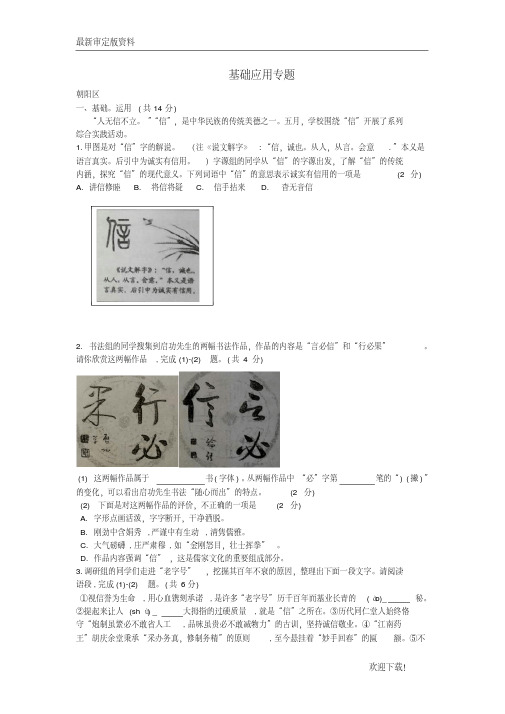 最新审定版资料
基础应用专题
朝阳区
一、基础。运用 （共 14 分）
“人无信不立。”“信”，是中华民族的传统美德之一。五月，学校围绕“信”开展了系列
综合实践活动。
1. 甲图是对“信”字的解说。 (注《说文解字》 ：“信，诚也。从人，从言。会意 . ”本义是
语言真实。后引中为诚实有信用。 ) 字源组的同学从“信”的字源出发，了解“信”的传统
内涵，探究“信”的现代意义。下列词语中“信”的意思表示诚实有信用的一项是 (2 分)
A. 讲信修睦 B. 将信将疑 C. 信手拈来 D. 杳无音信
信
《说文解字》：“信，诚也。
从人，从言，会意。”本又是语
言真实，后引中为诚实有信用。
2. 书法组的同学搜集到启功先生的两幅书法作品，作品的内容是“言必信”和“行必果” 。
请你欣赏这两幅作品 , 完成 (1)-(2) 题。( 共 4 分)
行必果
言必信
(1) 这两幅作品属于 书( 字体 ) 。从两幅作品中 “必”字第 笔的“) ( 撇 ) ”
的变化，可以看出启功先生书法“随心而出”的特点。 (2 分)
(2) 下面是对这两幅作品的评价，不正确的一项是 (2 分)
A. 字形点画活泼，字字断开，干净洒脱。
B. 刚劲中含娟秀 , 严谨中有生动 , 清隽儒雅。
C. 大气磅礴 , 庄严肃穆 , 如“金刚怒目，壮士挥拳” 。
D. 作品内容强调“信” ，这是儒家文化的重要组成部分。
3. 调研组的同学们走进“老字号” ，挖掘其百年不衰的原因，整理出下面一段文字。请阅读
语段 , 完成 (1)-(2) 题。( 共 6 分)
①视信誉为生命 , 用心血镌刻承诺 , 是许多“老字号”历千百年而基业长青的 秘。
②提起来让人 大拇指的过硬质量 , 就是“信”之所在。③历代同仁堂人始终恪
守“炮制虽繁必不敢省人工 , 品味虽贵必不敢减物力”的古训，坚持诚信敬业。④“江南药
王”胡庆余堂秉承“采办务真，修制务精”的原则 , 至今悬挂着“妙手回春”的匾 额。⑤不
欢迎下载!